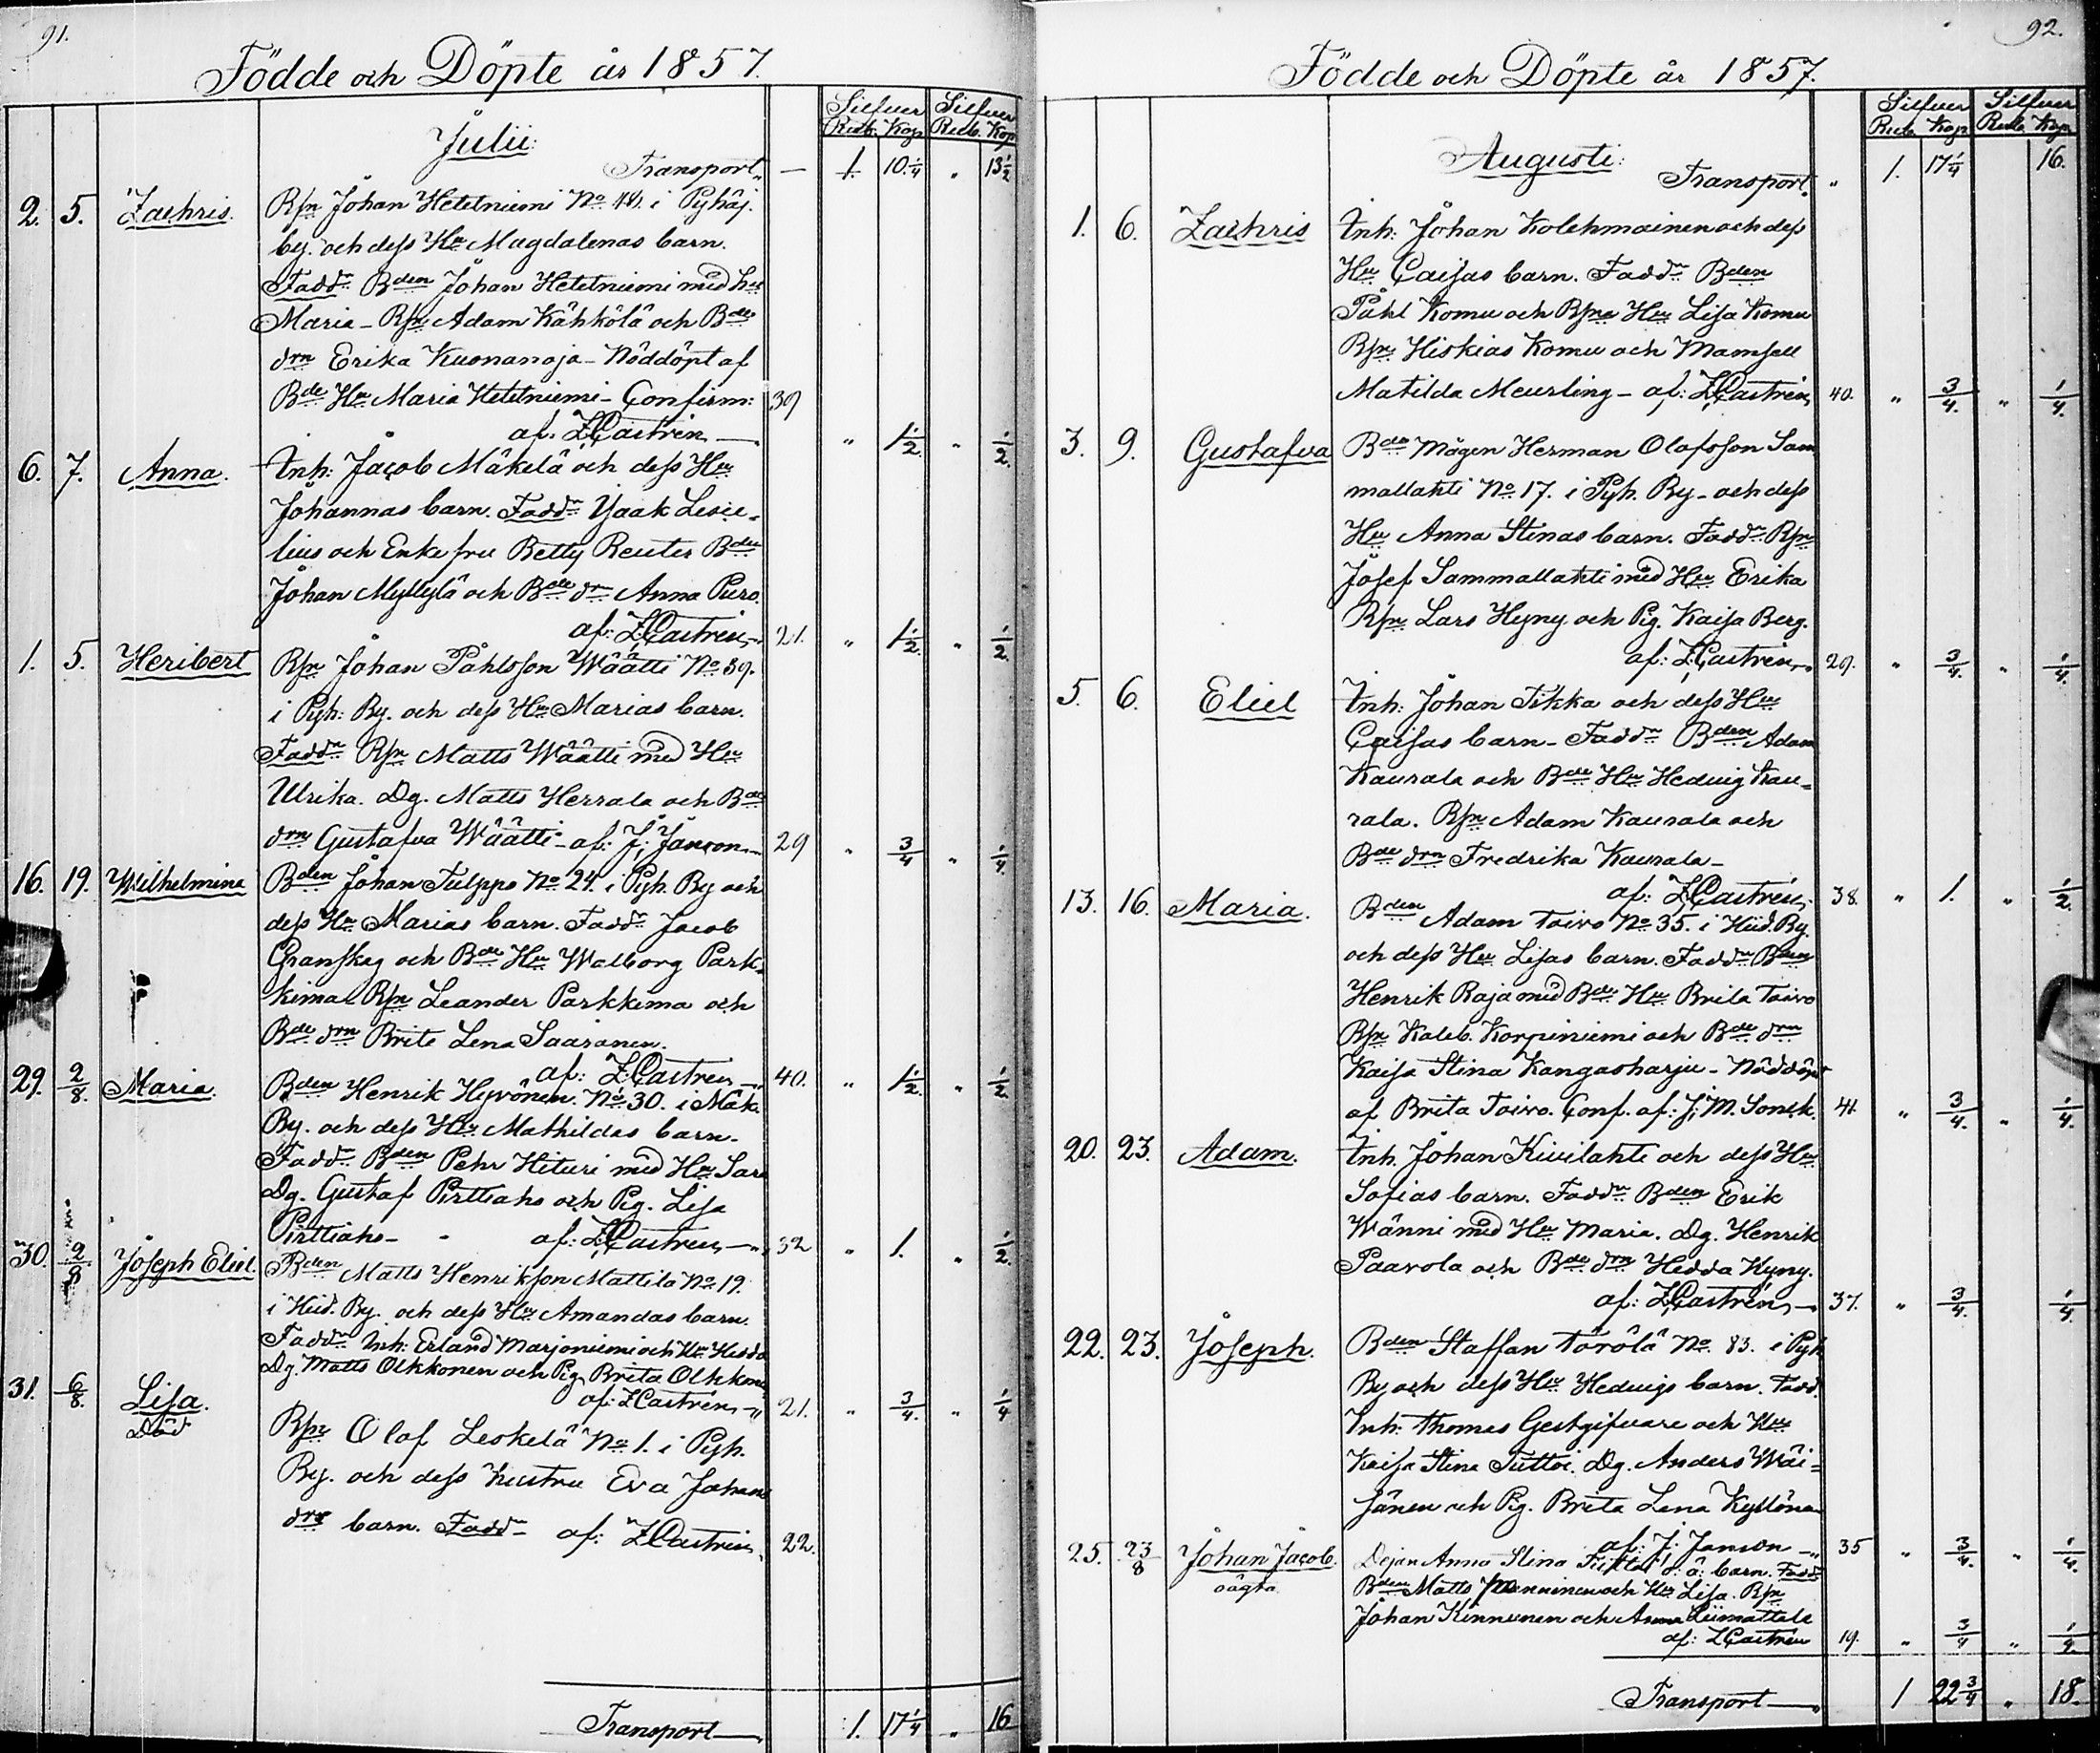 91.
Födde och Döpte år 1857.
Silfver Silfver
Rub. Kop Rub. Kop
Julii:
Transport — 1. 10 1/4 " 13 1/2
2. 5. Zachris. Bjn Johan Hetetniemi No 48. i Pyhäj.
by. och dess Hu Magdalenas barn.
Faddr Bden Johan Hetetniemi med hu
Maria – Bjn Adam Kähkölä och Bde
drn Erika Kuonanoja – Nöddöpt af
Bde Hu Maria Hetetniemi – Confirm: 39
af. Z Castrén — " 1 1/2 " 1/2
6. 7. Anna. Inh: Jacob Mäkelä och dess Hu
Johannas barn. Faddr Isaak Lesce-
lius och Enke fru Betty Reuter Bden
Johan Myllylä och Bde dr Anna Puro.
af: Z Castrén – 21. " 1 1/2 " 1/2
1. 5. Heribert Bjn Johan Påhlsson Wäätti No 39.
i Pyh: By. och dess Hu Marias barn.
Faddr Bjn Matts Wäätti med Hu
Ulrika. Dg. Matts Herrala och Bde
drn Gustafva Wäätti – af: J. Janson – 29 " 3/4 " 1/4
16. 19. Wilhelmina Bden Johan Tulppo No 24. i Pyh. By och
dess Hu Marias barn. Faddr Jacob
Granskog och Bde Hu Walborg Park-
kima – Bjn Leander Parkkima och
Bde drn Brite Lena Saaranen.
af: Z. Castrén – 40. " 1 1/2 " 1/2
29. 2/8. Maria. Bden Henrik Hyvönen. No 30. i Mäk.
By. och dess Hu Mathildas barn.
Faddr Bden Pehr Hituri med Hu Sara
Dg. Gustaf Pirttiaho och Pig. Lisa
Pirttiaho – af: Z Castrén – 32 " 1. " 1/2
30. 2/8 Joseph Eliel. Bden Matts Henriksson Mattila No 19.
i Hid. By. och dess Hu Amandas barn.
Faddr Inh: Erland Marjoniemi och Hu Hedda
Dg. Matts Olkkonen och Pig Brita Olkkonen
af: Z Castrén – 21. " 3/4. " 1/4
31. 6/8. Lisa. Bjn Olof Leskelä No 1. i Pyh.
Död
By. och dess hustru Eva Johans
drs barn. Faddr af: Z Castrén. 22.
Transport — 1. 17 1/4 " 16
92.
Födde och Döpte år 1857.
Silfver Silfver
Rub. Kop Rub. Kop
Augusti:
Transport. " 1. 17 1/4 16.
1. 6. Zachris Inh: Johan Kolehmainen och dess
Hu Caisas barn. Faddr Bden
Påhl Komu och Bjns Hu Lisa Komu
Bjn Hiskias Komu och Mamsell
Matilda Meurling – af: Z Castrén 40. " 3/4. " 1/4.
3. 9. Gustafva Bde Mågen Herman Olofsson Sam
mallahti No 17. i Pyh. By – och dess
Hu Anna Stinas barn. Faddr Bjn
Josef Sammallahti med Hu Erika
Bjn Lars Hyny och Pig. Kaisa Berg.
af: Z Castrén – 29. " 3/4. " 1/4.
5. 6. Eliel Inh: Johan Tikka och dess Hu
Caisas barn – Faddr Bden Adam
Kaurala och Bde Hu Hedvig Kau-
rala. Bjn Adam Kaurala och
Bde drn Fredrika Kaurala –
af: Z Castrén. 38. " 1. " 1/2.
13. 16. Maria. Bden Adam Toivo No 35. i Hid. By.
och dess Hu Lisas barn. Faddr Bden
Henrik Raja med Bde Hu Brita Toivo
Bjn Kaleb. Korpiniemi och Bde drn
Kaisa Stina Kangasharju – Nöddöpt
af Brita Toivo. Conf. af: J: M. Sonck. 41. " 3/4. " 1/4.
20. 23. Adam. Inh. Johan Kivilahti och dess Hu
Sofias barn. Faddr Bden Erik
Wänni med Hu Maria. Dg. Henrik
Paavola och Bde drn Hedda Hyny.
af: Z Castrén – 37. " 3/4. 1/4
22. 23. Joseph. Bden Staffan Törölä No 83. i Pyh
By och dess Hu Hedvigs barn. Fadd.
Inh: Thomas Gestgifvare och Hu
Kaisa Stina Tuttoi. Dg. Anders Wäi-
sänen och Pig. Brita Lena Kyllönen
af: J: Janson – 35 " 3/4. " 1/4.
25. 23/8 Johan Jacob. Dejan Anna Stina o: ä: barn. Fadd
oägta Bden Matts Manninen och Hu Lisa. Bjn
Johan Kinnunen och Anna Liimattala
af: Z Castrén 19. " 3/4 " 1/4
Transport — 1 22 3/4 " 18.